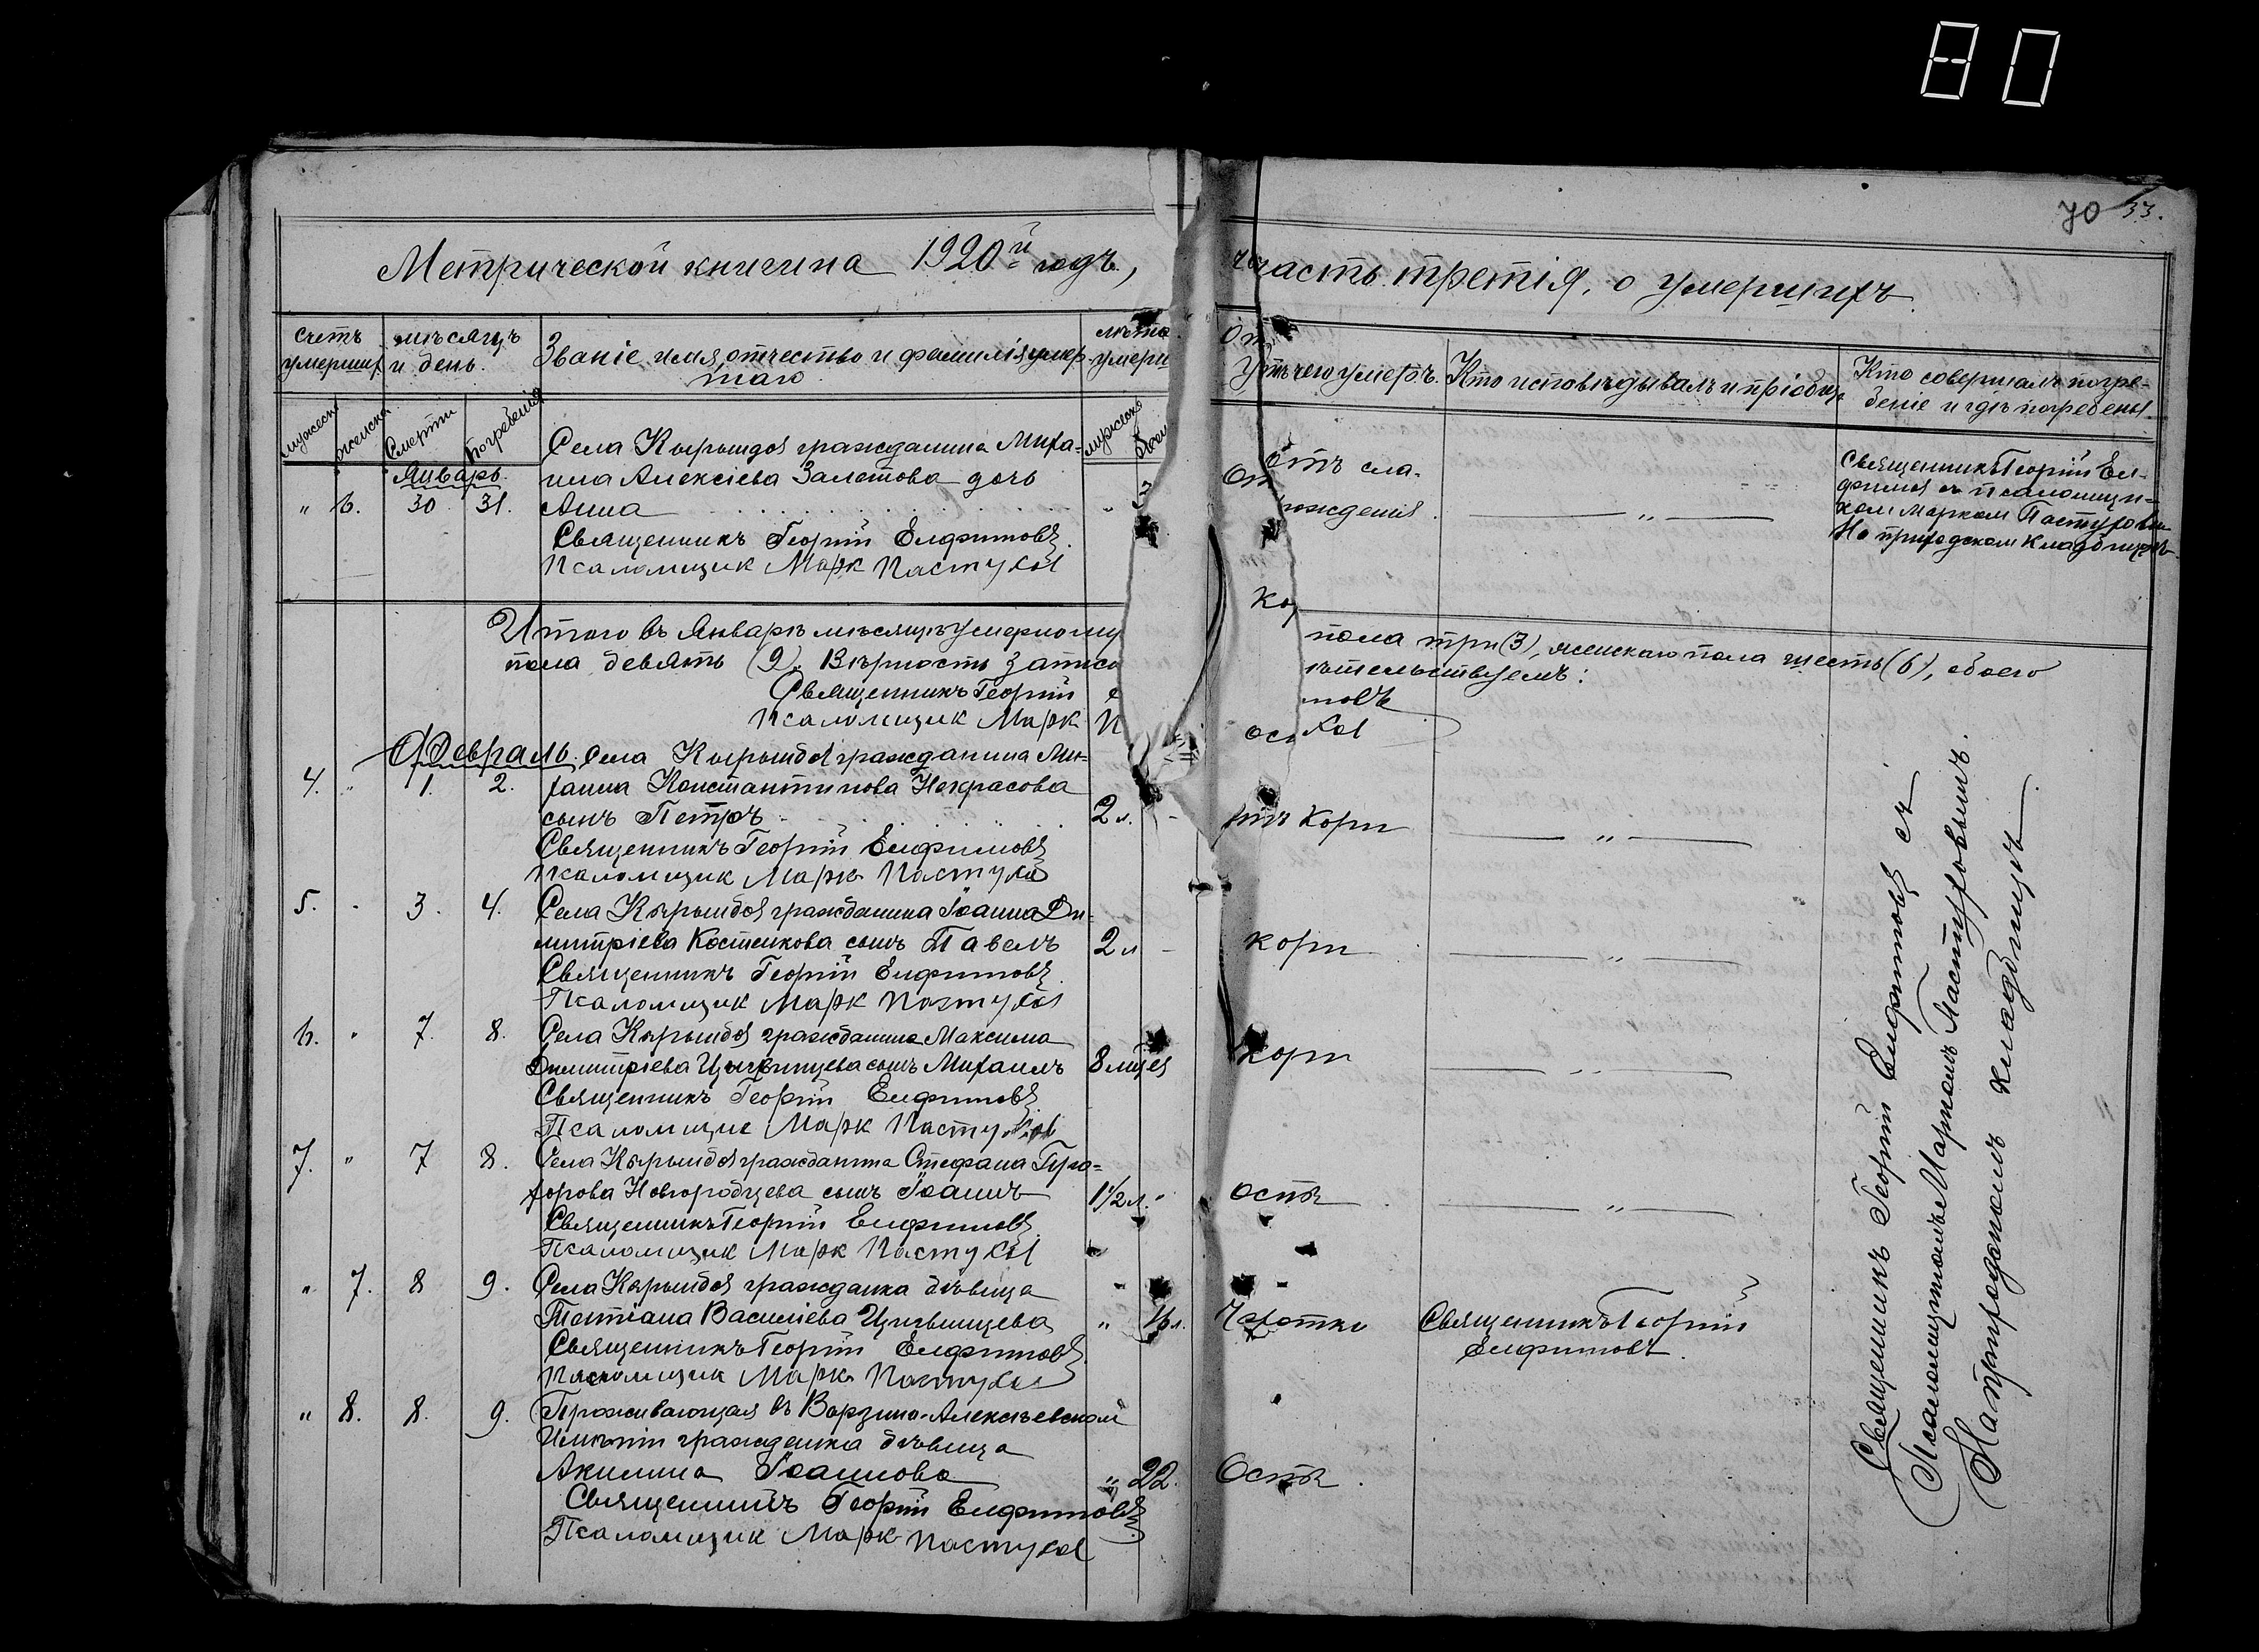 80
70 33.
Метрической книги на 1920й годъ,
часть третія, о умершихъ
счетъ умерших
мѣсяцъ и день.
Званіе имя, отчество и фамилія умер-
шаго
лѣта умерш
Отъ чего умеръ.
Кто исповѣдывалъ и пріобщ
Кто совершалъ погре-
беніе и гдѣ погребены.
мужеск
женска
Смерти
Погребенія
мужеско
Январь.
Села Кырыидоя гражданина Миха-
ила Алексіева Залетова дочь
" 6. 30 31. Анна
Священникъ Георгій Елфимовъ
Псаломщик Марк Пастухов
отъ сла-
рожденія
Священникъ Георгій Ел-
фимов съ псаломщи-
ком Марком Пастуховым
На приходском кладбищѣ
Итого въ Январѣ мѣсяцѣ умерло му
пола три (3), женскаго пола шесть (6), обоего
пола девять (9). Вѣрность записи
ѣтельствуемъ:
Священникъ Георгій
мовъ
Псаломщик Марк П
хов
Февраль. Села Кырыидоя гражданина Ми-
4. " 1. 2. хаила Константинова Некрасова
сынъ Петръ 2 л. -
отъ Кори
Священникъ Георгій Елфимовъ
Псаломщик Марк Пастухов
5. - 3. 4. Села Кырыидоя гражданина Іоанна Ди-
митріева Костенкова сынъ Павелъ 2 л -
кори
Священникъ Георгій Елфимовъ
Псаломщик Марк Пастухов
6. " 7. 8. Села Кырыидоя гражданина Максима
Димитріева сынъ Михаилъ 8 мѣс
кори
Священникъ Георгій Елфимовъ
Псаломщик Марк Пастухов
7. " 7 8. Села Кырыидоя гражданина Стефана
Новгородцева сынъ Іоаннъ 1 1/2 л. "
оспы
Священникъ Георгій Елфимовъ
Псаломщик Марк Пастухов
" 7. 8 9. Села Кырыидоя гражданка дѣвица
Татіана Василіева " 16 л.
Чахотки
Священникъ Георгій
Елфимовъ.
Священникъ Георгій Елфимовъ
Псаломщик Марк Пастухов
" 8. 8. 9. Проживающая въ Варзино-Алексѣевской
Имѣніи гражданка дѣвица
Акилина Іоаннова " 22.
Оспы
Священникъ Георгій Елфимовъ
Псаломщик Марк Пастухов
Священникъ Георгій Елфимовъ съ
Псаломщикомъ Маркомъ Пастуховымъ.
На приходскомъ кладбищѣ